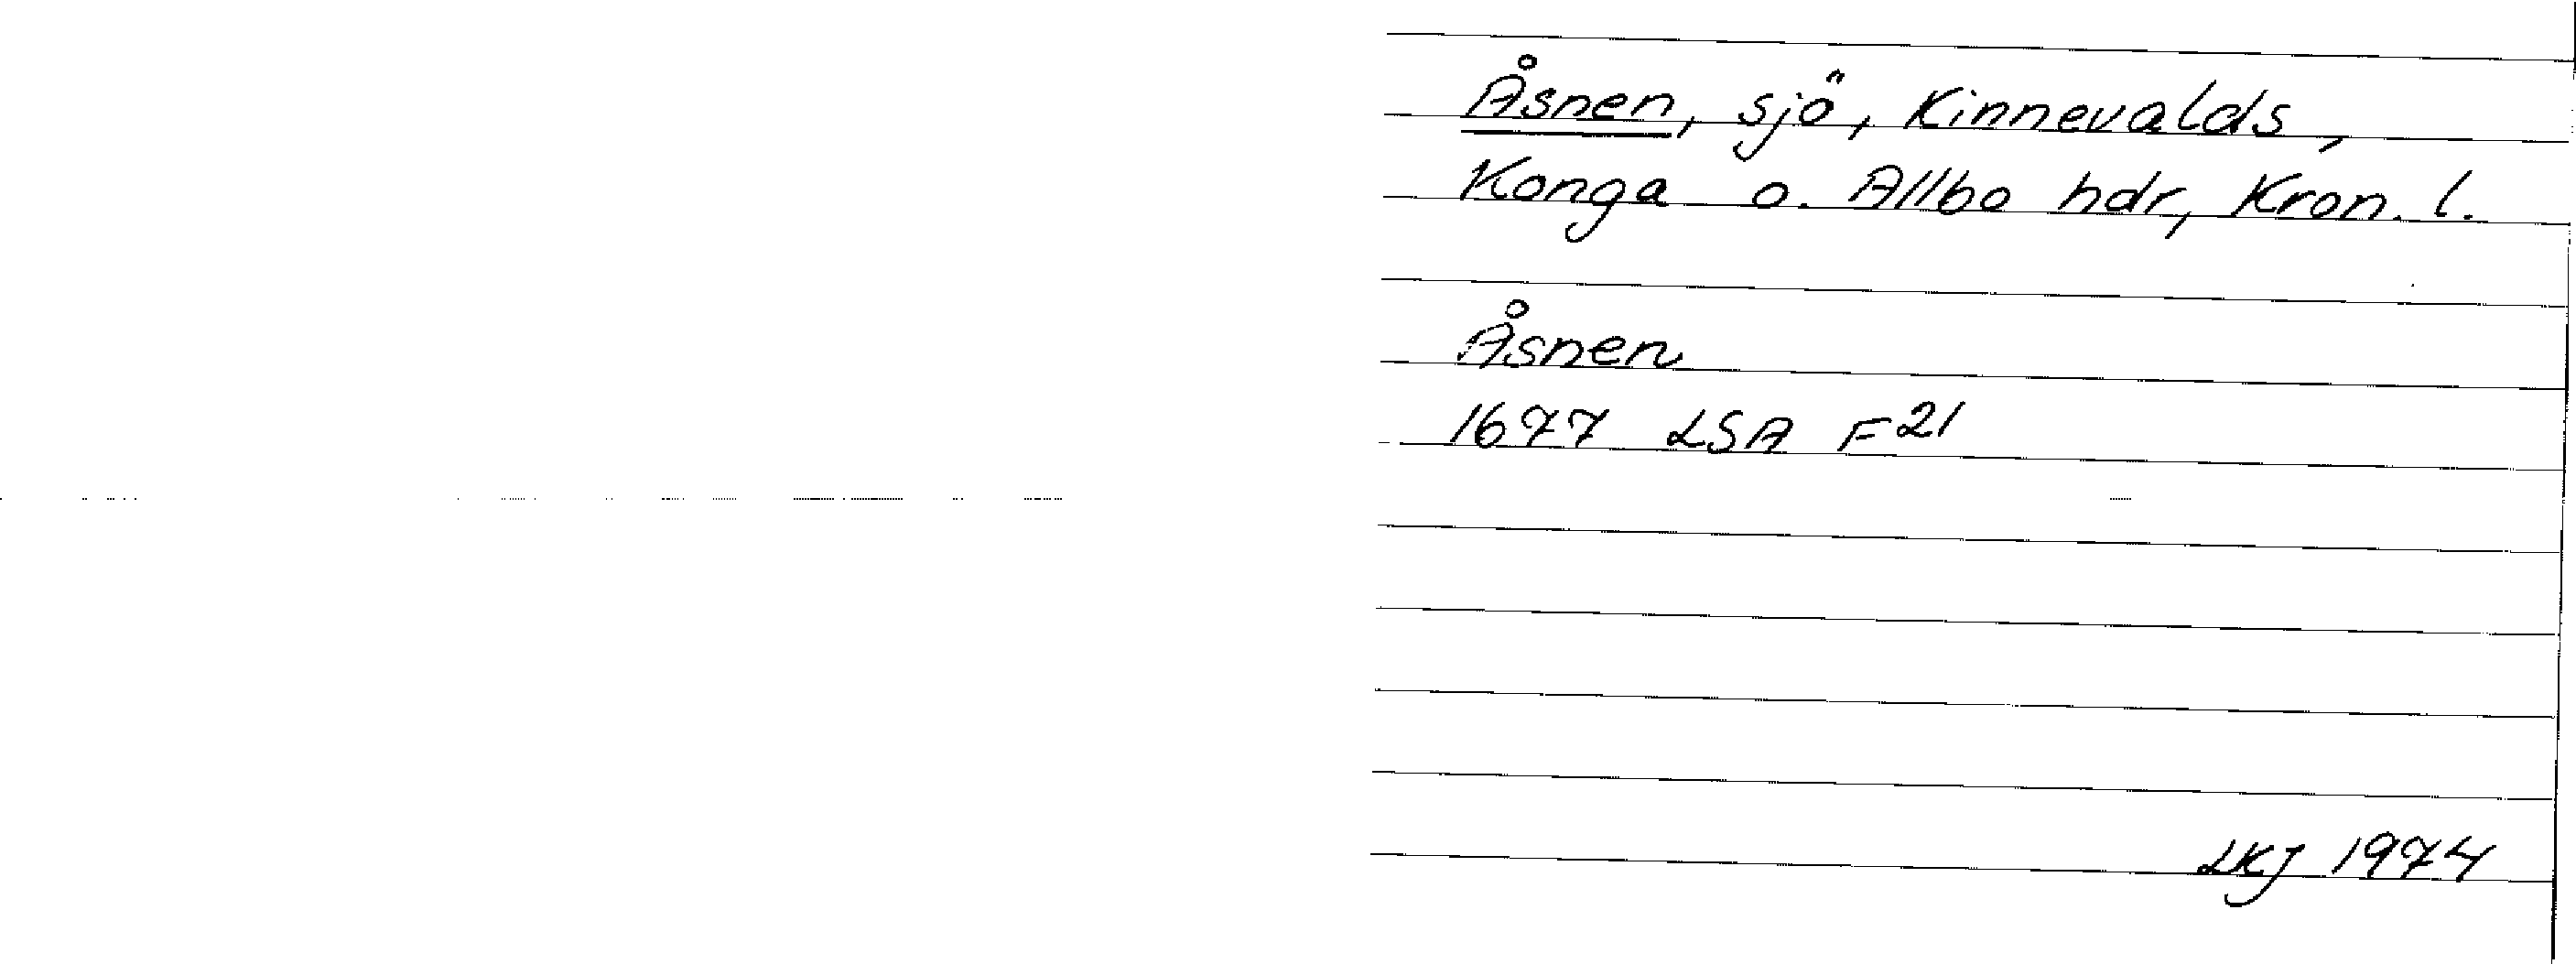 Åsnen, sjö, Kinnevalds,
Konga o. Allbo hdr, Kron. l.
Åsnen
1677 LSA F21
LKJ 1974